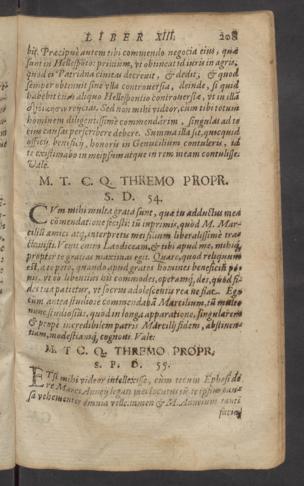 LIBER XIII. 208
bis. Præcipuè autem tibi commendo negocia eius, quæ
sunt in Hellesponto: primùm, vt obtineat id iuris in agris,
quod ei Patriana ciuitas decreuit, & dedit, & quod
semper obtinuit sine vlla controuersia, deinde, si quid
habebit cum aliquo Hellespontio controuersiæ, vt in illã
reijcias. Sed non mihi videor, cum tibi totum
hominem diligentissimè commendarim, singulas ad te
eius causas perscribere debere. Summa illa sit, quicquid
officij, beneficij, honoris in Genucilium contuleris, id
te existimabo in me ipsum atque in rem meam contulisse.
Vale.
M. T. C. Q. THREMO PROPR.
S. D. 54.
CVm mihi multa grata sunt, quæ tu adductus mea
commendatione fecisti: tũ inprimis, quòd M. Mar-
cilium amici atq, interpretis mei filium liberalissimè trac-
tauisti. Venit enim Laodiceam, & tibi apud me, mihiq,
propter te gratias maximas egit. Quare, quod reliquum
est, à te peto, quando apud gratos homines beneficiũ po-
nis, vt eò libentius his commodes, operamq, des, quoad fi-
des tua patietur, vt socrus adolescentis rea ne fiat. Ego
cùm antea studiosè commendabã Marcilium, tũ multò
nunc studiosius, quòd in longa apparatione, singularem
& propè incredibilem patris Marcilij fidem, abstinen-
tiam, modestiamq, cognoui. Vale.
M. T. C. Q. THREMO PROPR,
S. P. D. 55.
ETsi mihi videor intellexisse, cùm tecum Ephesi de
re Marci Anneij legati mei locutus sũ te ipsius cau-
sa vehementer omnia velle. tamen & M. Anneium tanti
facio,